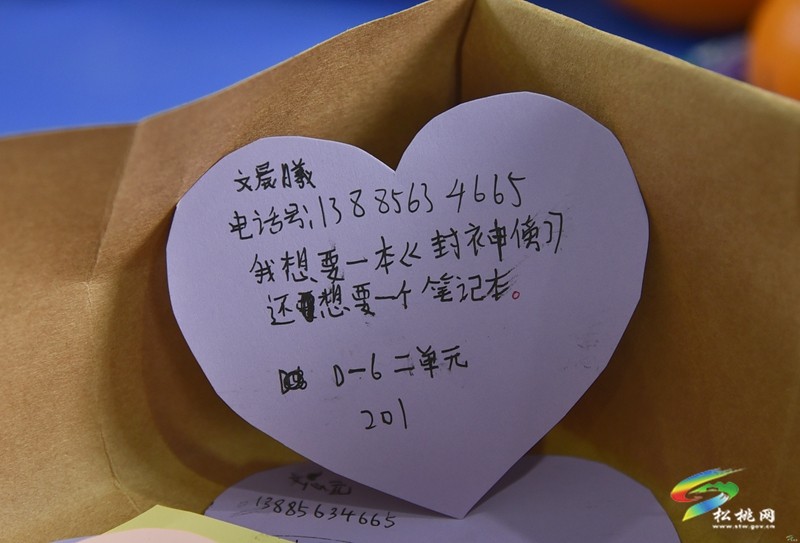 文晨曦
电话号:13885634665
我想要一本《封衣神使》
还想要一个笔记本。
D-6二单元
201
13885634665
松桃网
www.stw.gov.cn